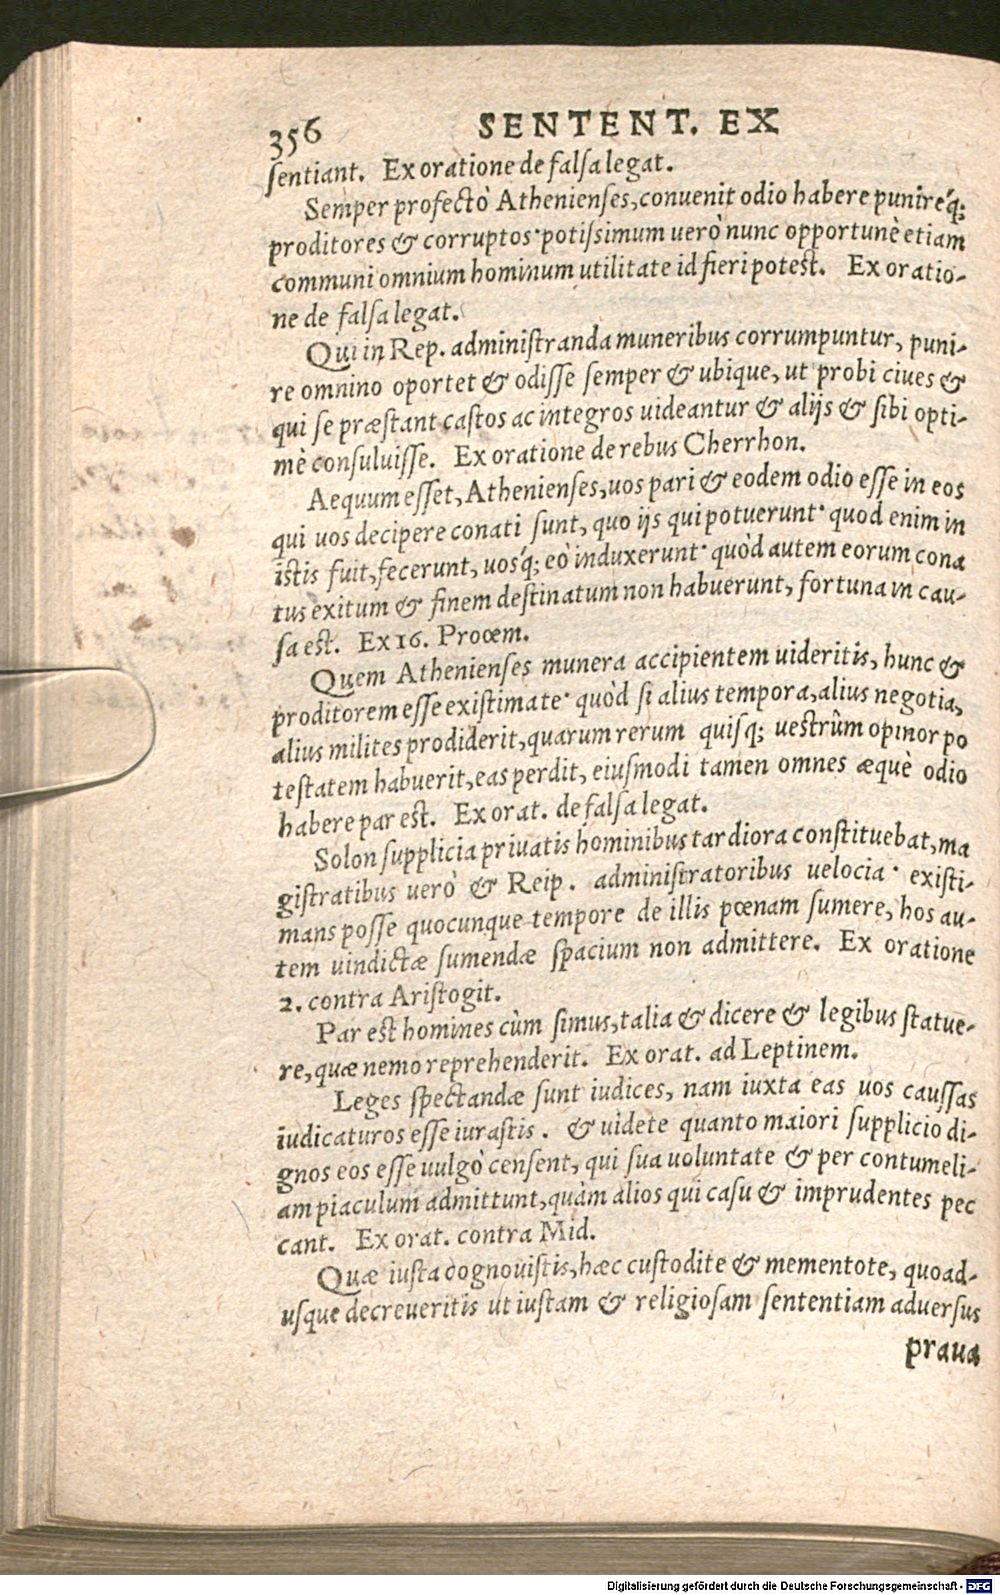 356 SENTENT. EX
ſentiant. Ex oratione de falſa legat.
Semper profectò Athenienſes, convenit odio habere punireq́;
proditores & corruptos· potiſsimum uerò nunc opportunè etiam
communi omnium hominum utilitate id fieri potest. Ex oratio-
ne de falſa legat.
Qui in Rep. adminiſtranda muneribus corrumpuntur, puni-
re omnino oportet & odiſſe ſemper & ubique, ut probi ciues &
qui ſe præſtant caſtos ac integros uideantur & alijs & ſibi opti-
mè conſuluiſſe. Ex oratione de rebus Cherrhon.
Aequum eſſet, Athenienſes, uos pari & eodem odio eſſe in eos
qui uos decipere conati ſunt, quo ijs qui potuerunt· quod enim in
iſtis fuit, fecerunt, uosq́; eò induxerunt· quòd autem eorum cona
tus exitum & finem deſtinatum non habuerunt, fortuna in cau-
ſa eſt. Ex 16. Proœm.
Quem Athenienſes munera accipientem uideritis, hunc &
proditorem eſſe exiſtimate· quòd ſi alius tempora, alius negotia,
alius milites prodiderit, quarum rerum quiſq; ueſtrûm opinor po
teſtatem habuerit, eas perdit, eiuſmodi tamen omnes æquè odio
habere par eſt. Ex orat. de falſa legat.
Solon ſupplicia priuatis hominibus tardiora conſtituebat, ma
giſtratibus uerò & Reip. adminiſtratoribus uelocia· exiſti-
mans poſſe quocunque tempore de illis pœnam ſumere, hos au-
tem uindictæ ſumendæ ſpacium non admittere. Ex oratione
2. contra Ariſtogit.
Par eſt homines cùm ſimus, talia & dicere & legibus ſtatue-
re, quæ nemo reprehenderit. Ex orat. ad Leptinem.
Leges ſpectandæ ſunt iudices, nam iuxta eas uos cauſſas
iudicaturos eſſe iuraſtis. & uidete quanto maiori ſupplicio di-
gnos eos eſſe uulgò cenſent, qui ſua uoluntate & per contumeli-
am piaculum admittunt, quàm alios qui caſu & imprudentes pec
cant. Ex orat. contra Mid.
Quæ iuſta cognouiſtis, hæc cuſtodite & mementote, quoad-
uſque decreueritis ut iuſtam & religioſam ſententiam aduerſus
praua
Digitalisierung gefördert durch die Deutsche Forschungsgemeinschaft - DFG